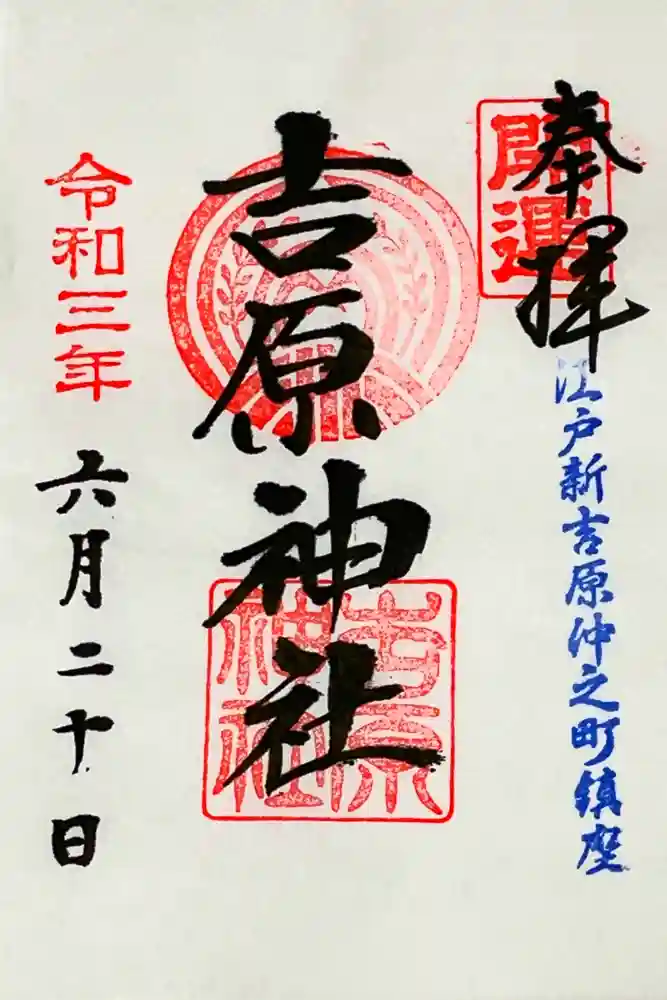 奉拝
開運
江戸新吉原仲之町鎮座
吉原神社
吉原神社
令和三年
六月二十日